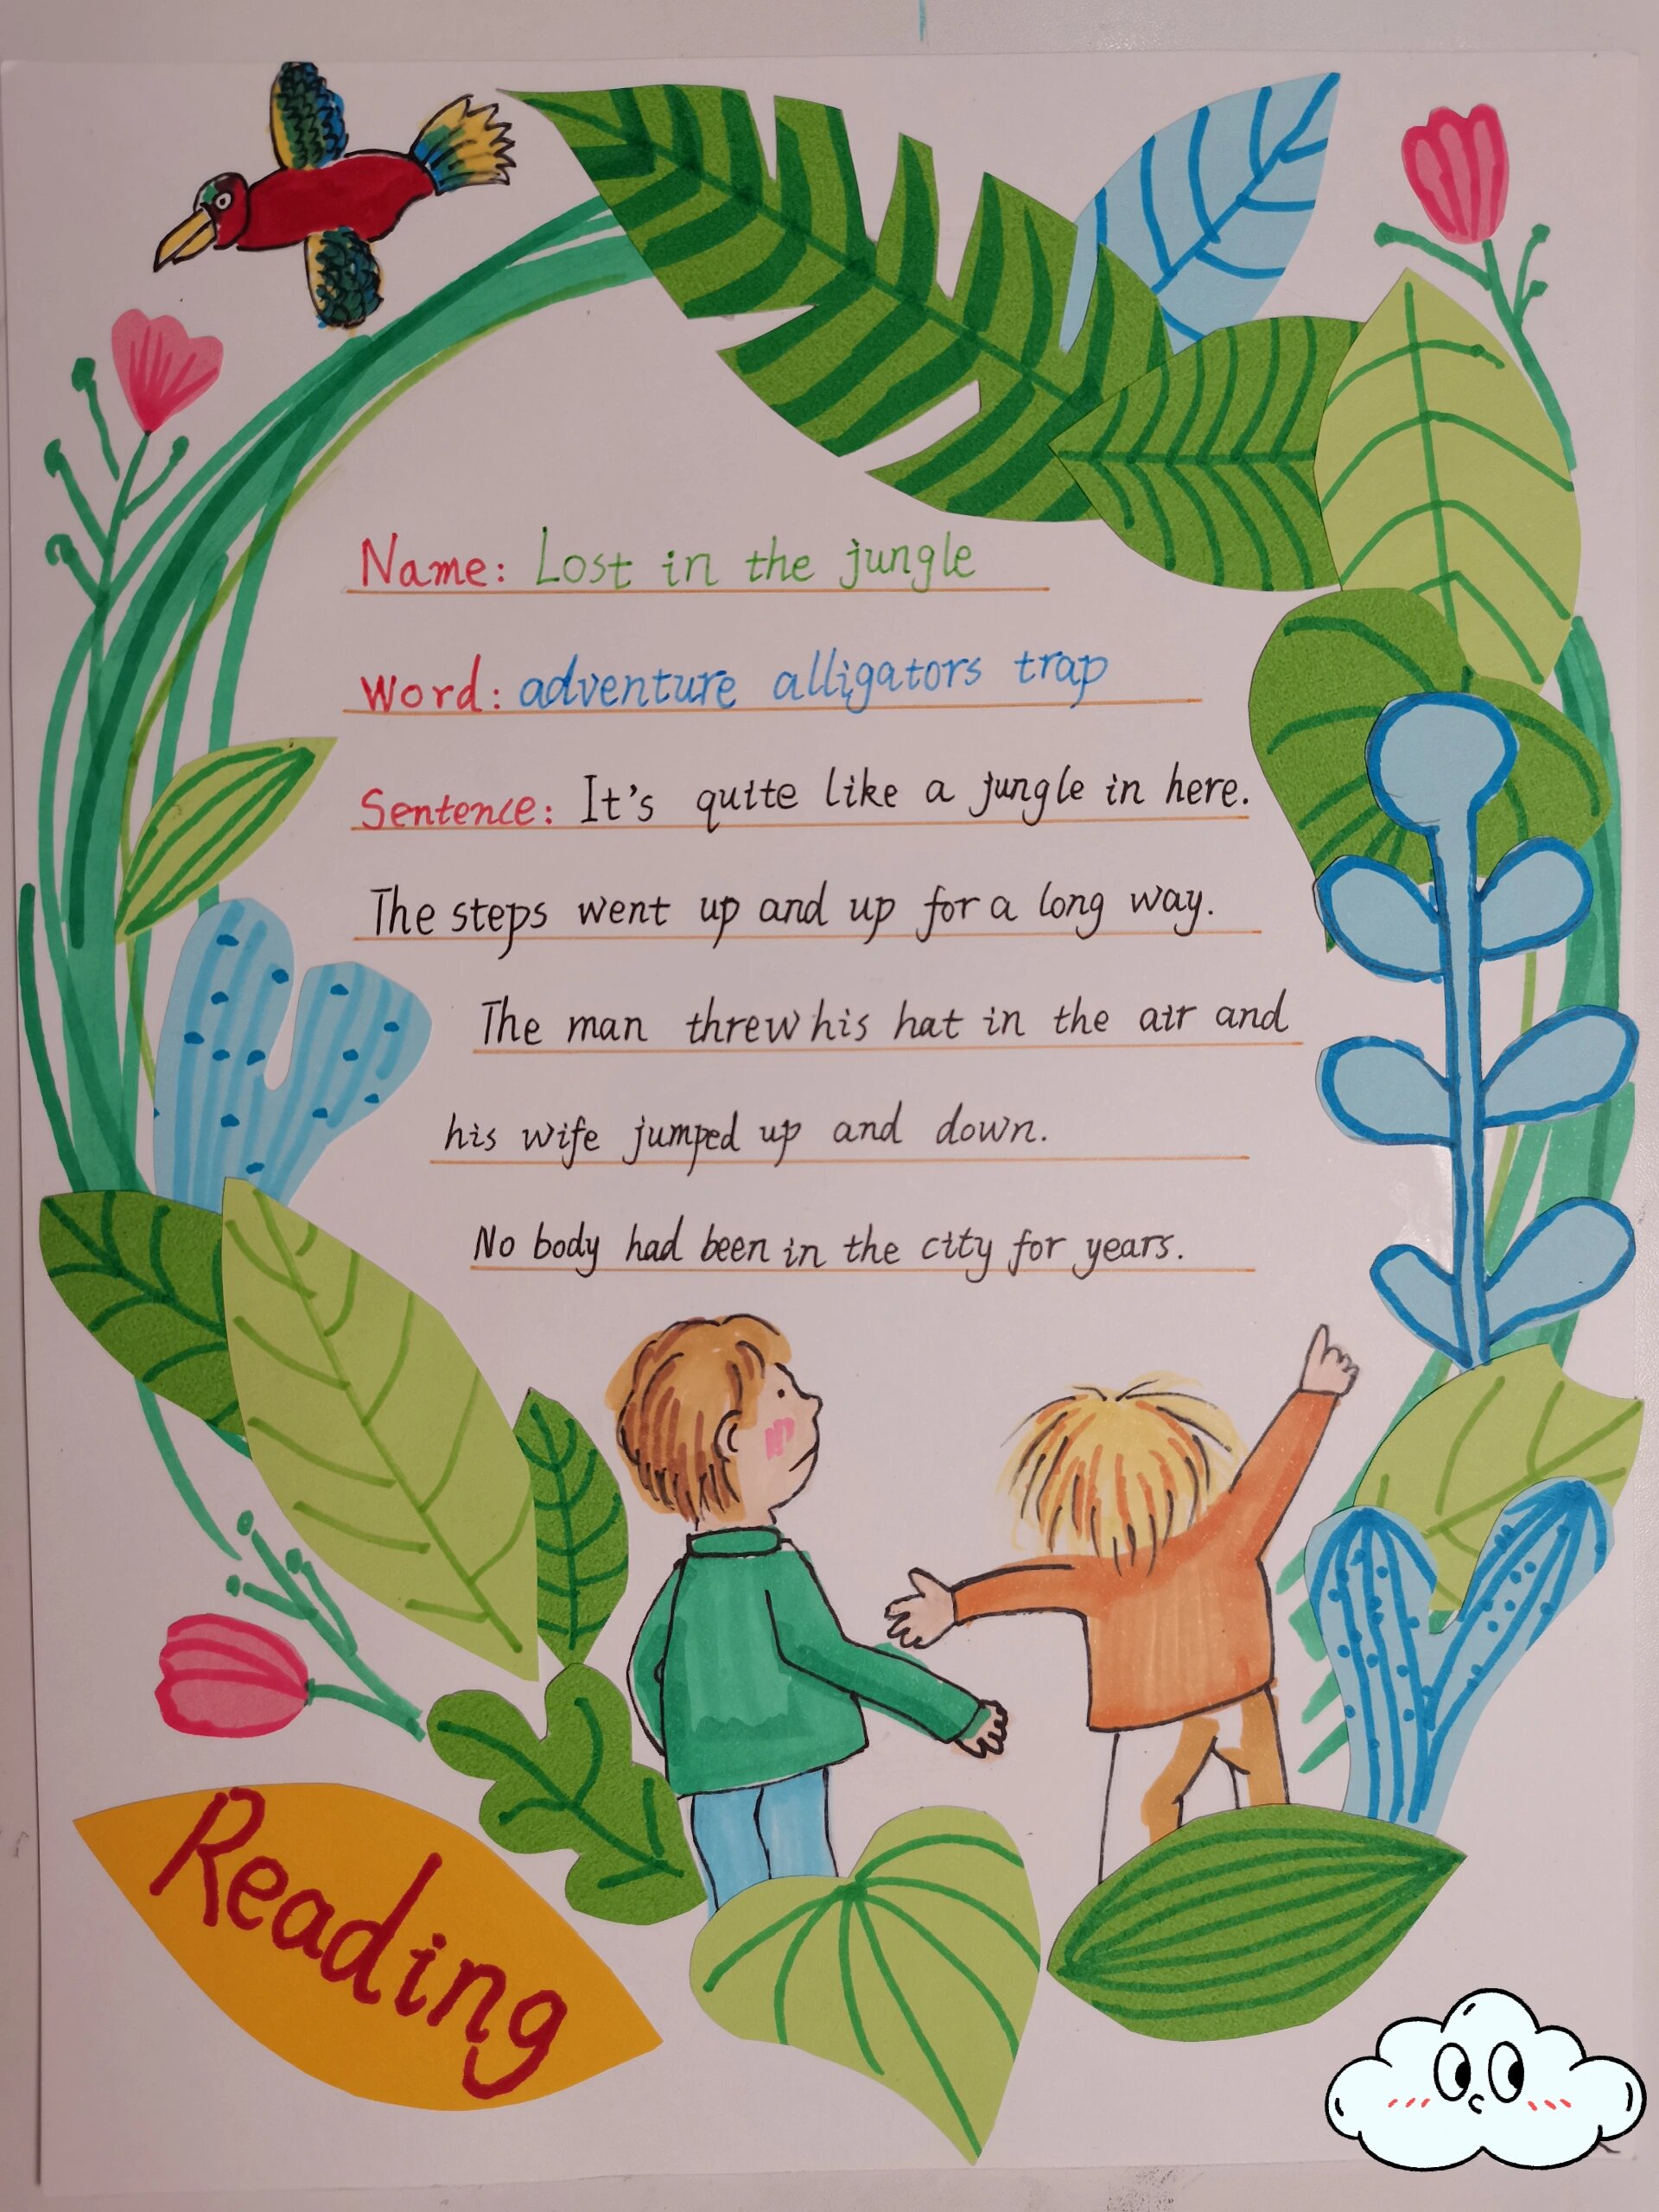 Name: Lost in the jungle
Word: adventure alligators trap
Sentence: It's quite like a jungle in here.
The steps went up and up for a long way.
The man threw his hat in the air and
his wife jumped up and down.
No body had been in the city for years.
Reading